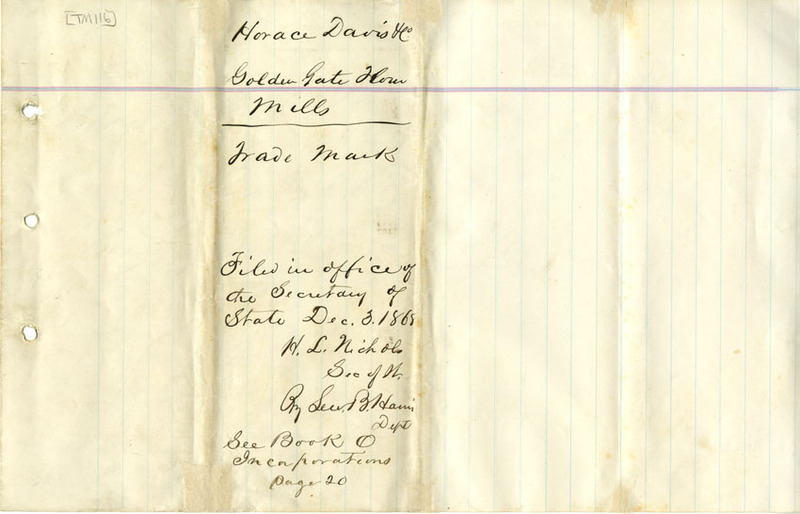 [TM116]
Horace Davis & Co
Golden Gate Flour
Mills
Trade Mark
Filed in office of
the Secretary of
State Dec. 3. 1868
H. L. Nichols
Sec of St.
By Lew. B. Harris
Dept
See Book O
Incorporations
page 20